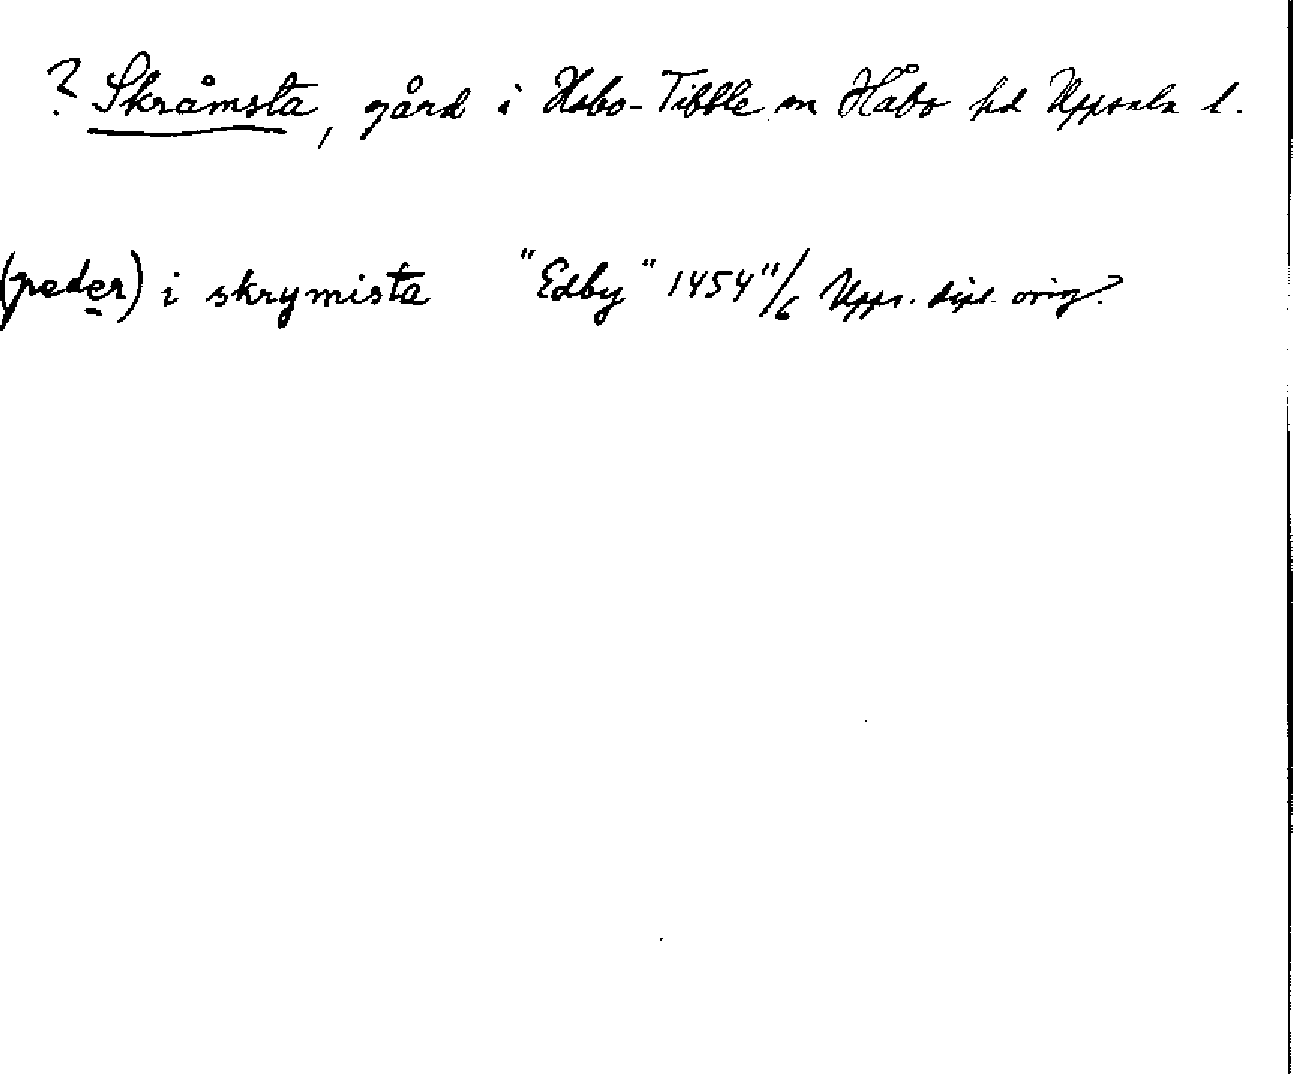 ? Skråmsta, gård i Håbo-Tibble sn Håbo hd Uppsala l.
(peder) i skrymista "Edby" 1454 11/6 Upps. dipl. orig.?